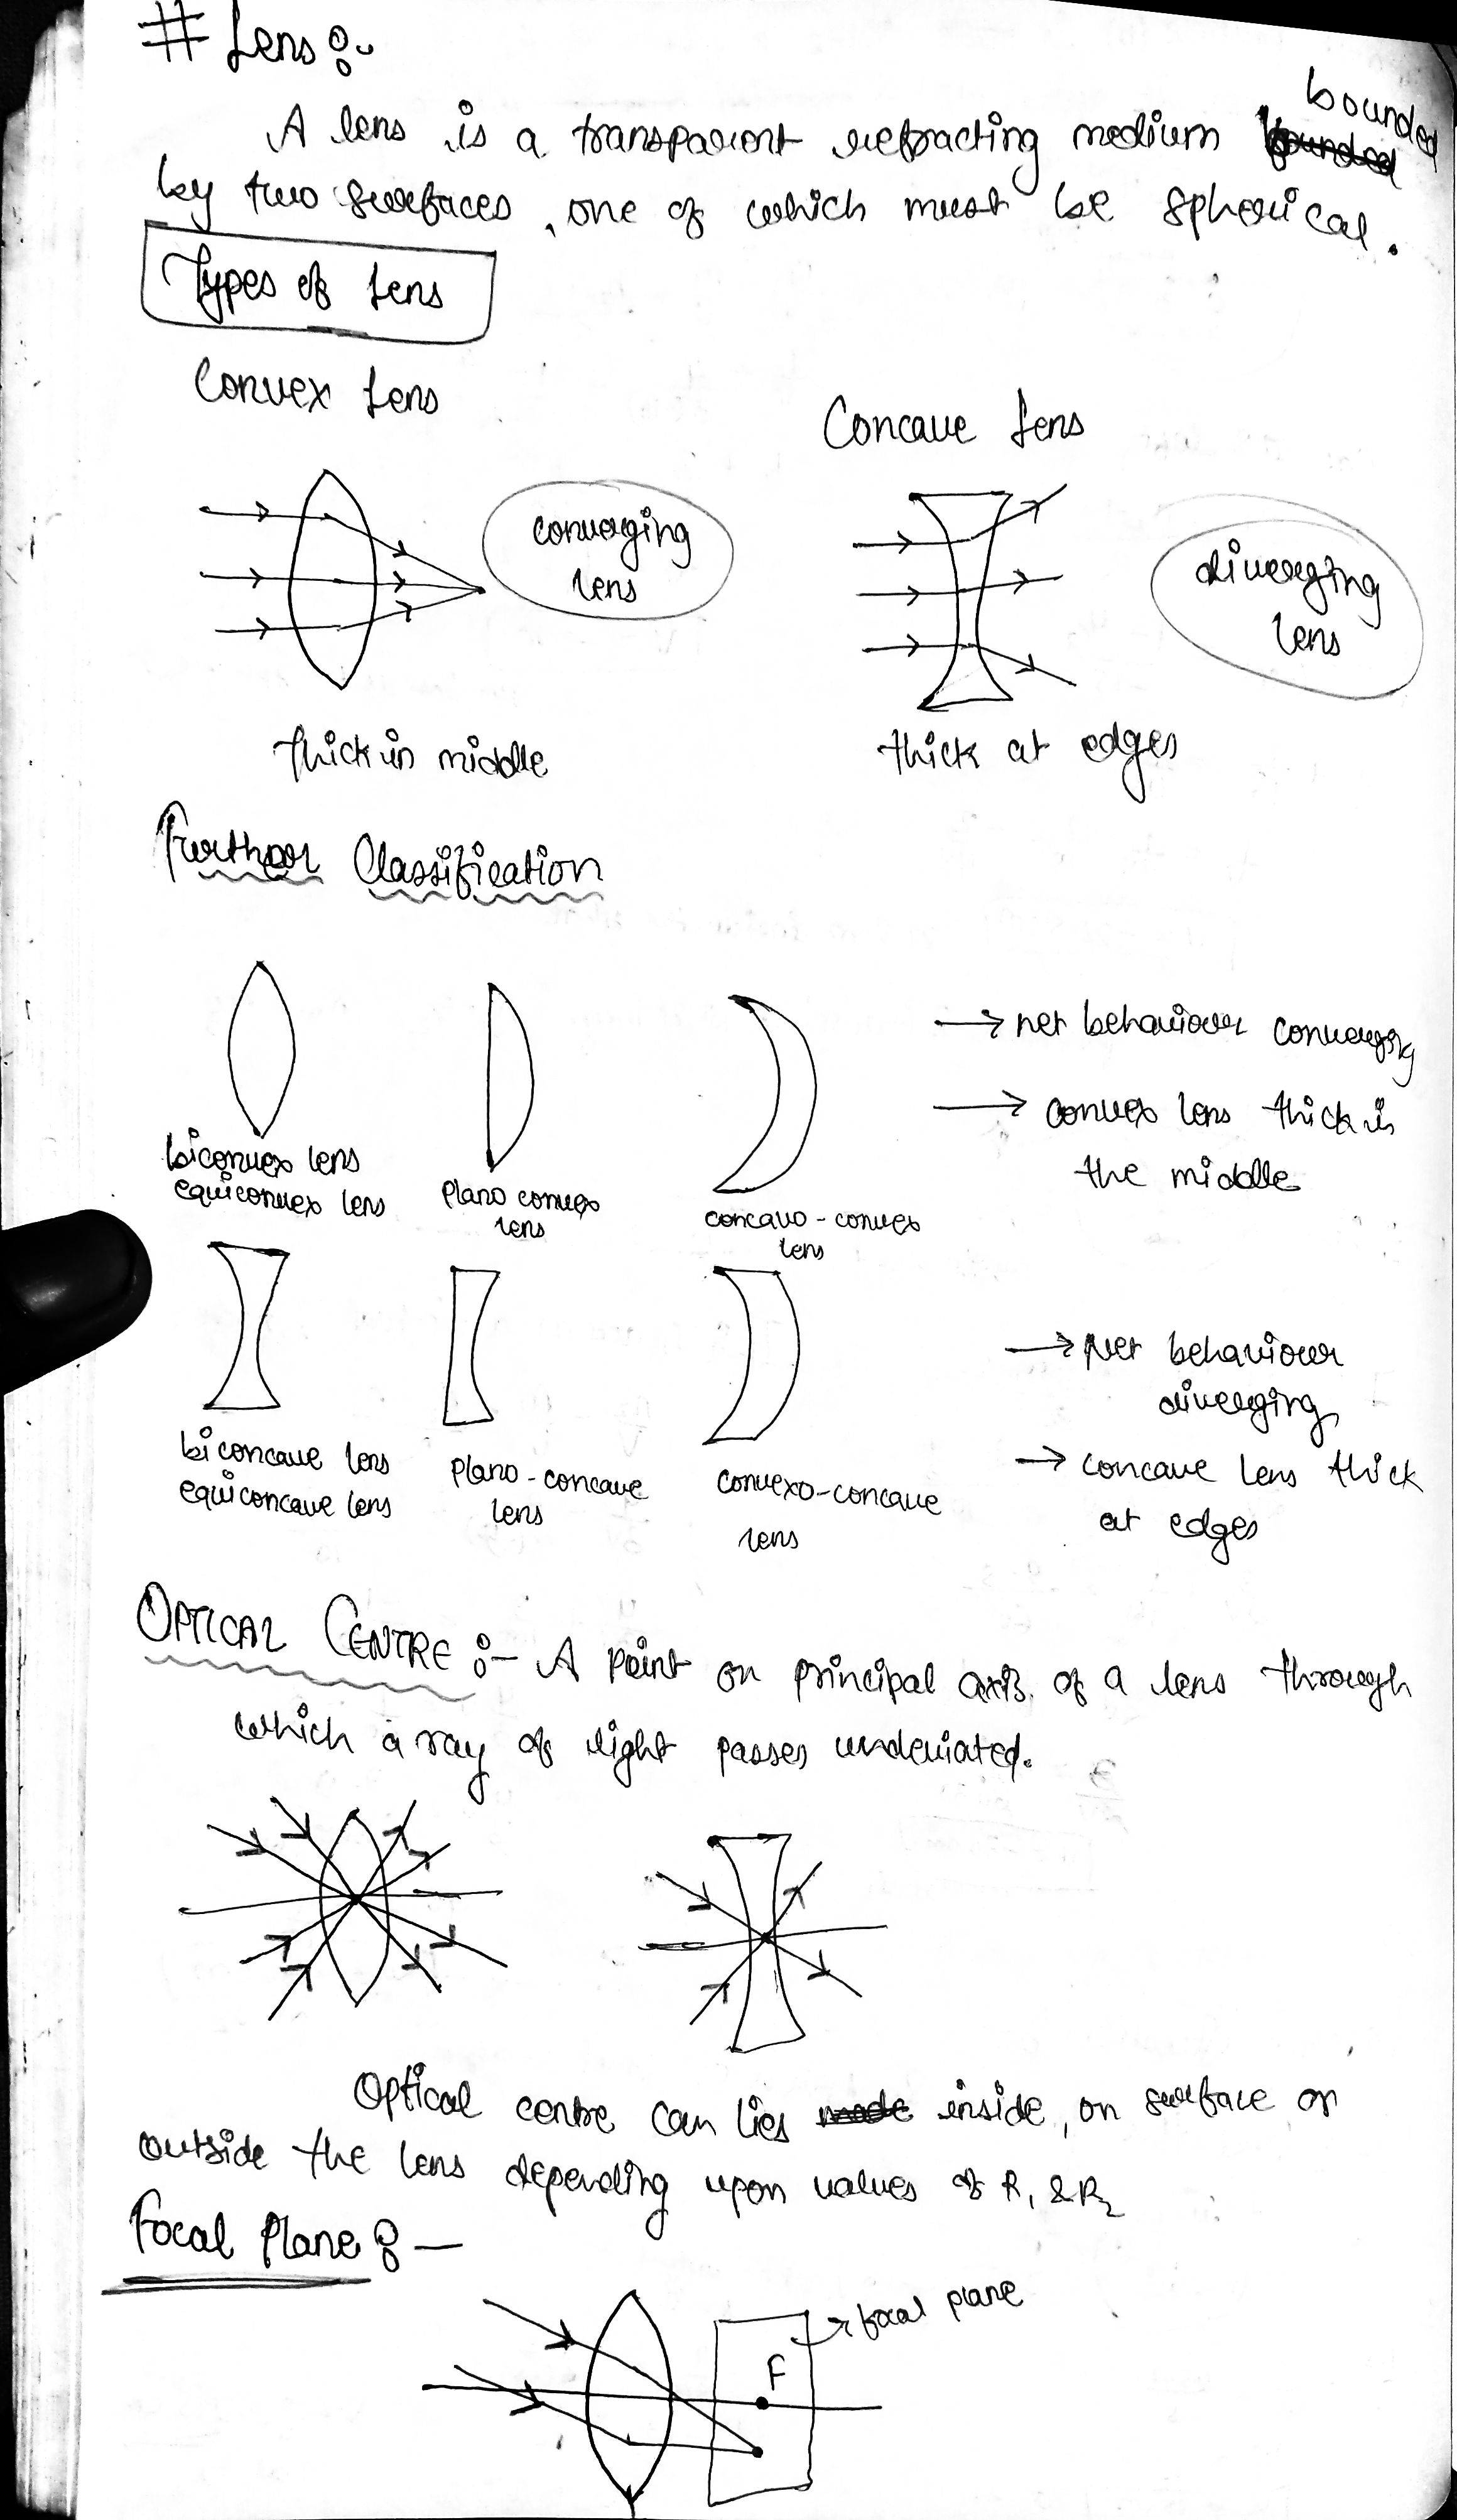 # Lens :-
A lens is a transparent refracting medium bounded
by two surfaces, one of which must be spherical.
Types of Lens
Convex Lens
Concave Lens
converging
lens
diverging
lens
thick in middle
thick at edges
Further Classification
→ net behaviour converging
→ convex lens thick in
the middle
biconvex lens
equiconvex lens
plano convex
lens
concavo-convex
lens
→ Net behaviour
diverging
→ concave lens thick
at edges
biconcave lens
equiconcave lens
plano-concave
lens
convexo-concave
lens
OPTICAL CENTRE :- A point on principal axis of a lens through
which a ray of light passes undeviated.
Optical centre can lies inside, on surface or
outside the lens depending upon values of R₁ & R₂
Focal Plane :-
→ focal plane
F